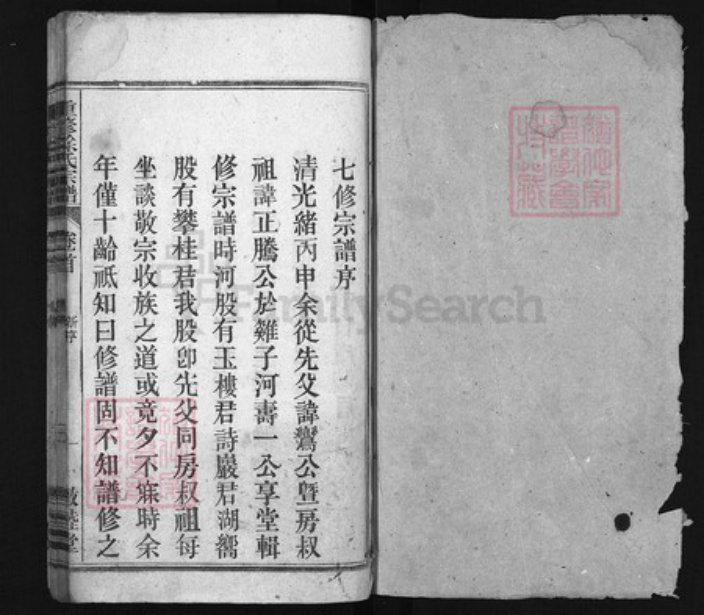 七修宗譜序
清光緒丙申余從先父諱鸞公曁房叔
祖諱正騰公於雞子河壽一公享堂輯
修宗譜時河股有玉樓君詩巖君湖衕
股有攀桂君我股卽先父同房叔祖每
坐談敬宗收族之道或竟夕不寐時余
年僅十齡祇知曰修譜固不知譜修之
重修徐氏宗譜
卷首
新序
一
敦睦堂
FamilySearch